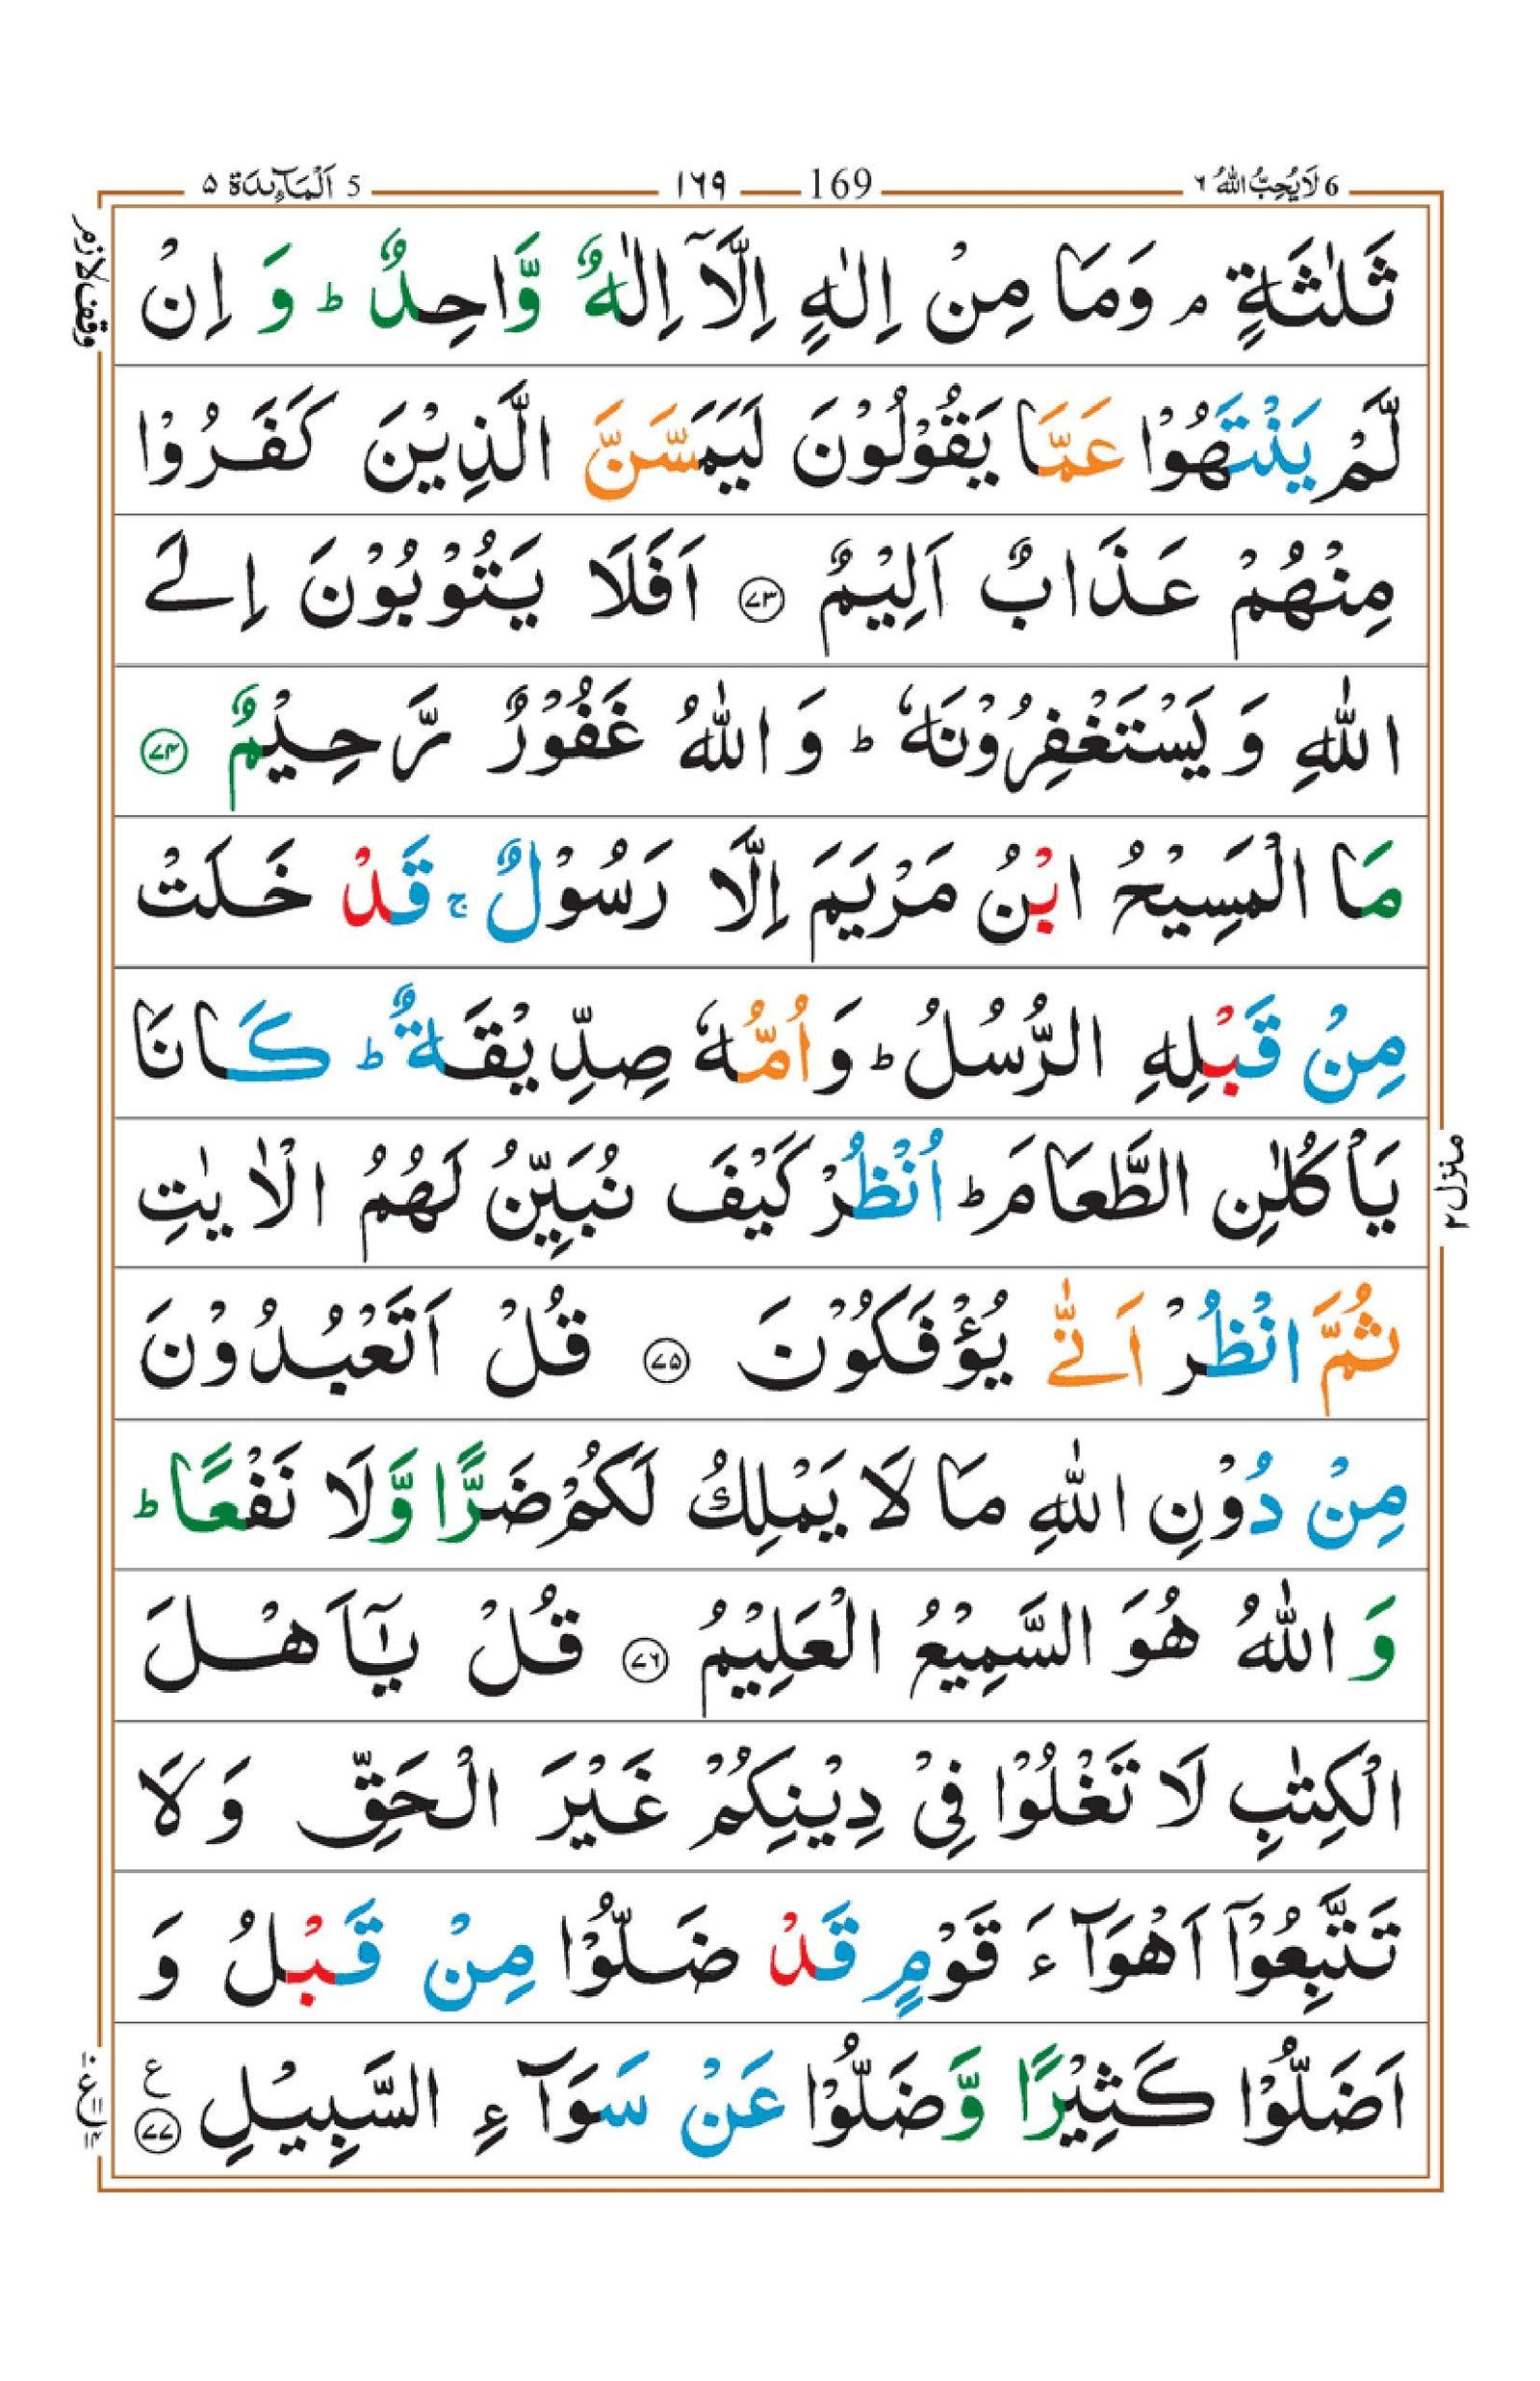 6 لَا يُحِبُّ اللهُ ٦ 169 ١٦٩ 5 اَلْمَآئِدَة ٥
وقف لازم
ثَلٰثَةٍ ۘ وَمَا مِنْ اِلٰهٍ اِلَّاۤ اِلٰهٌ وَّاحِدٌ ؕ وَ اِنْ
لَّمْ يَنْتَهُوْا عَمَّا يَقُوْلُوْنَ لَيَمَسَّنَّ الَّذِيْنَ كَفَرُوْا
مِنْهُمْ عَذَابٌ اَلِيْمٌ ﴿۷۳﴾ اَفَلَا يَتُوْبُوْنَ اِلَى
اللّٰهِ وَ يَسْتَغْفِرُوْنَهٗ ؕ وَ اللّٰهُ غَفُوْرٌ رَّحِيْمٌ ﴿۷۴﴾
مَا الْمَسِيْحُ ابْنُ مَرْيَمَ اِلَّا رَسُوْلٌ ۚ قَدْ خَلَتْ
مِنْ قَبْلِهِ الرُّسُلُ ؕ وَ اُمُّهٗ صِدِّيْقَةٌ ؕ كَانَا
يَاْكُلٰنِ الطَّعَامَ ؕ اُنْظُرْ كَيْفَ نُبَيِّنُ لَهُمُ الْاٰيٰتِ
منزل ٢
ثُمَّ انْظُرْ اَنّٰى يُؤْفَكُوْنَ ﴿۷۵﴾ قُلْ اَتَعْبُدُوْنَ
مِنْ دُوْنِ اللّٰهِ مَا لَا يَمْلِكُ لَكُمْ ضَرًّا وَّلَا نَفْعًا ؕ
وَ اللّٰهُ هُوَ السَّمِيْعُ الْعَلِيْمُ ﴿۷۶﴾ قُلْ يٰۤاَهْلَ
الْكِتٰبِ لَا تَغْلُوْا فِيْ دِيْنِكُمْ غَيْرَ الْحَقِّ وَ لَا
تَتَّبِعُوْۤا اَهْوَآءَ قَوْمٍ قَدْ ضَلُّوْا مِنْ قَبْلُ وَ
اَضَلُّوْا كَثِيْرًا وَّ ضَلُّوْا عَنْ سَوَآءِ السَّبِيْلِ ﴿۷۷﴾ ع